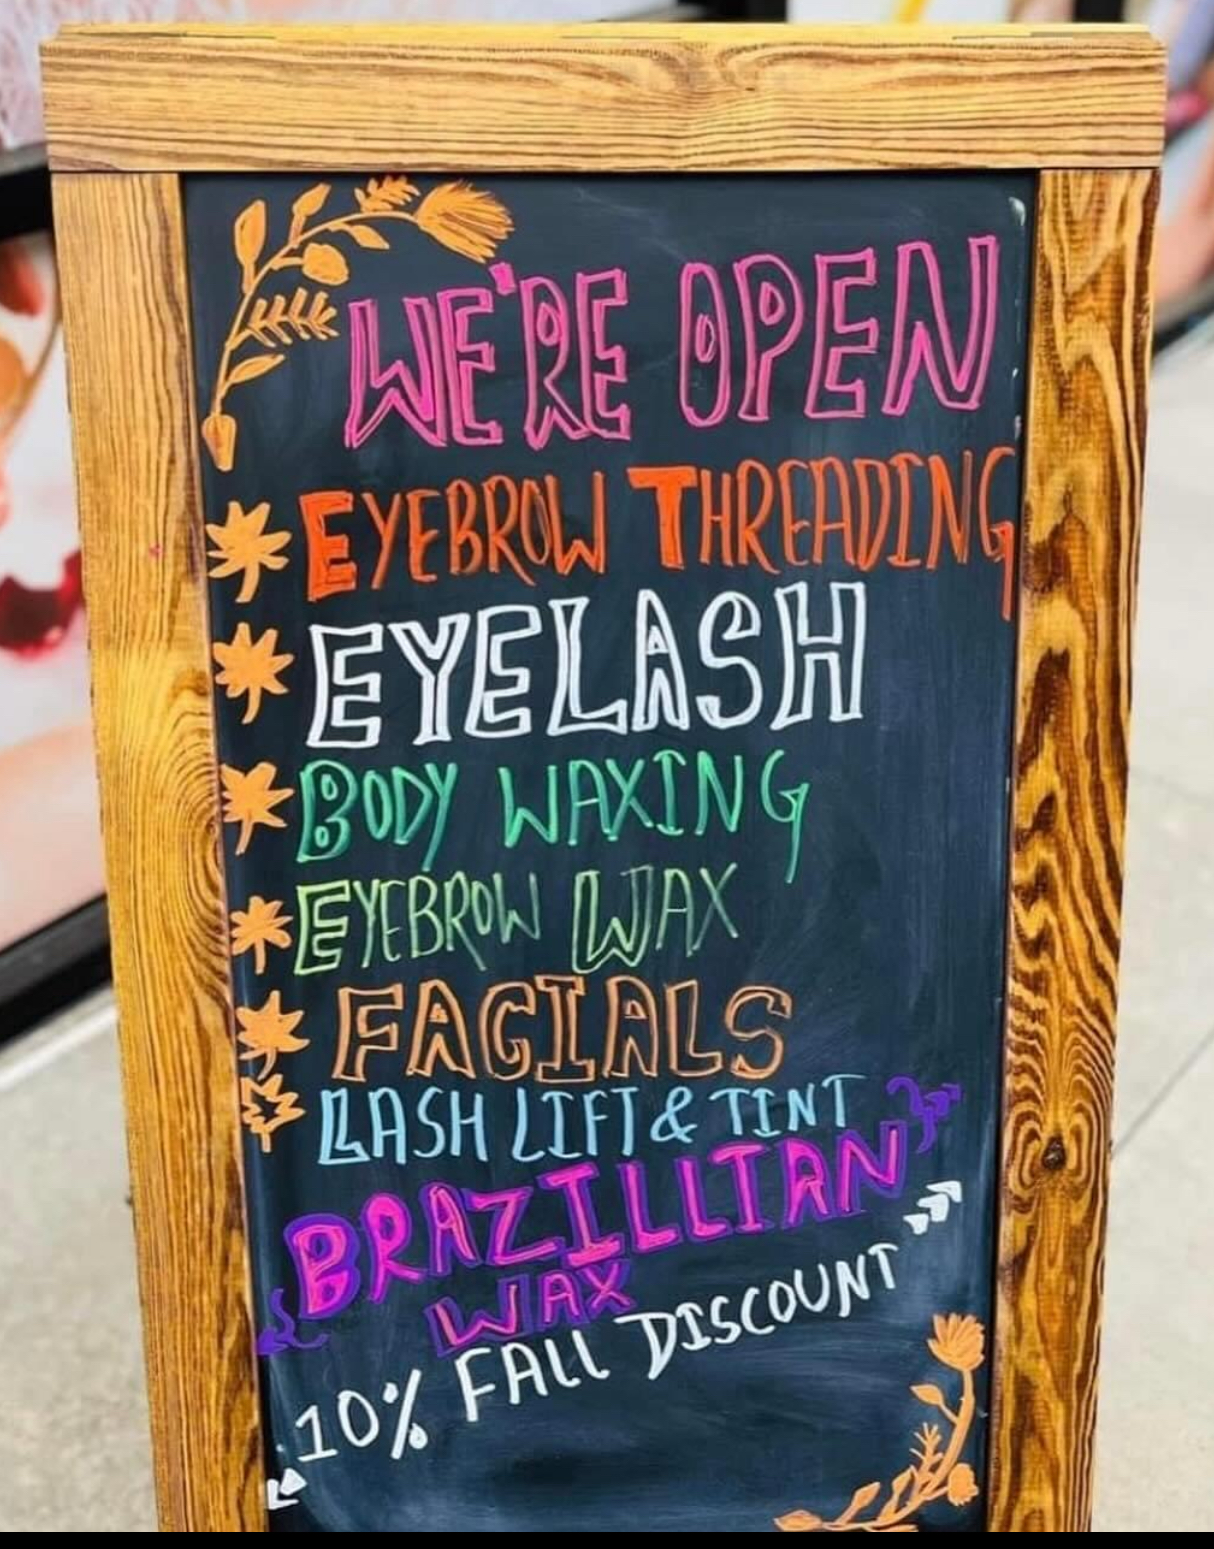 WE'RE OPEN
EYEBROW THREADING
EYELASH
BODY WAXING
EYEBROW WAX
FACIALS
LASH LIFT & TINT
BRAZILLIAN
WAX
10% FALL DISCOUNT